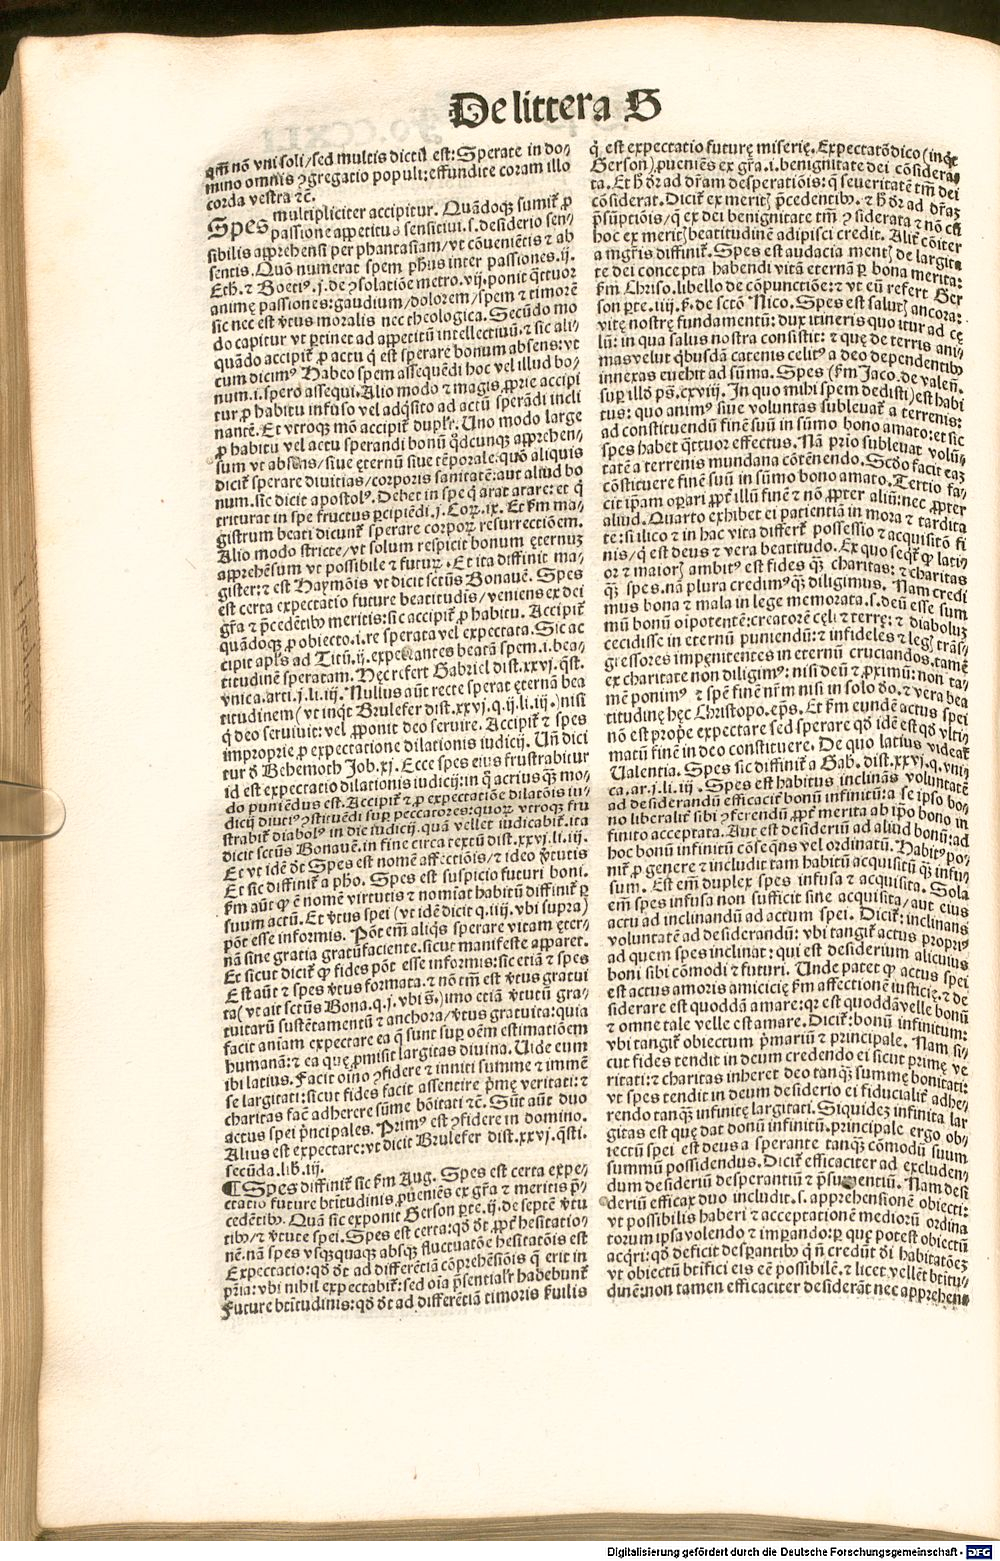 De littera S
qm̄ nō vni soli/sed multis dictū est: Sperate in do⸗
mino omnis ꝯgregatio populi: effundite coram illo
corda vestra ⁊c̄.
Spes multipliciter accipitur. Quādoqꝫ sumit̄ ꝓ
passione appetitus sensitiui. s. desiderio sen⸗
sibilis apprehensi per phantasiam/vt cōueniētis ⁊ ab
sentis. Quō numerat spem ph̄us inter passiones. ij.
Eth. ⁊ Boetiꝰ. j. de ꝯsolatiōe metro. vij. ponit q̄ttuor
animę passiones: gaudium/dolorem/spem ⁊ timorē
sic nec est v̄tus moralis nec theologica. Secūdo mo
do capitur vt ꝑtinet ad appetitū intellectiuū. ⁊ sic ali⸗
quādo accipit̄ ꝓ actu q̄ est sperare bonum absens: vt
cum dicimꝰ Habeo spem assequēdi hoc vel illud bo⸗
num. i. spero assequi. Alio modo ⁊ magis ꝓprie accipi
tur ꝓ habitu infuso vel adq̄sito ad actū sperādi incli
nantē. Et vtroqꝫ mō accipit̄ duplr̄. Uno modo large
ꝓ habitu vel actu sperandi bonū q̄dcunqꝫ apprehen⸗
sum vt absens/siue ęternū siue tēporale. quō aliquis
dicit̄ sperare diuitias/corporis sanitatē: aut aliud bo
num. sic dicit apostolꝰ. Debet in spe q̄ arat arare: et q̄
triturat in spe fructus ꝑcipiēdi. j. Coꝝ. ix. Et s̄m ma⸗
gistrum beati dicunt̄ sperare corpoꝝ resurrectiōem.
Alio modo stricte/vt solum respicit bonum ęternuꝫ
apprehēsum vt possibile ⁊ futuꝝ. Et ita diffinit ma⸗
gister: ⁊ est Haymōis vt dicit sctūs Bonauē. Spes
est certa expectatio future beatitudis/veniens ex dei
gr̄a ⁊ p̄cedētibꝰ meritis: sic accipit̄ ꝓ habitu. Accipit̄
quādoqꝫ ꝓ obiecto. i. re sperata vel expectata. Sic ac
cipit apl̄s ad Titū. ij. expectantes beatā spem. i. bea⸗
titudinē speratam. Hęc refert Gabriel dist. xxvj. q̄st.
vnica. arti. j. li. iij. Nullus aūt recte sperat ęternā bea
titudinem (vt inq̄t Brulefer dist. xxvj. q. ij. li. iij.) nisi
q̄ deo seruiuit: vel ꝓponit deo seruire. Accipit̄ ⁊ spes
improprie ꝓ expectatione dilationis iudicij. Un̄ dici
tur ꝺ Behemoth Job. xj. Ecce spes eius frustrabitur
id est expectatio dilationis iudicij: in q̄ acrius qꝫ mo⸗
do puniēdus est. Accipit̄ ⁊ ꝓ expectatiōe dilatōis iu⸗
dicij diutiꝰ ꝯstituēdi suꝑ peccatores: quoꝝ vtroqꝫ fru
strabit̄ diabolꝰ in die iudicij. quā vellet iudicabit̄. ita
dicit sctūs Bonauē. in fine circa textū dist. xxvj. li. iij.
Et vt idē ꝺt̄ Spes est nomē affectiōis/⁊ ideo v̄tutis
Et sic diffinit̄ a pho. Spes est suspicio futuri boni.
s̄m aūt ꝙ ē nomē virtutis ⁊ nomīat habitū diffinit̄ ꝑ
suum actū. Et v̄tus spei (vt idē dicit q. iiij. vbi supra)
pōt esse informis. Pōt em̄ aliq̄s sperare vitam ęter⸗
nā sine gratia gratūfaciente. sicut manifeste apparet.
Et sicut dicit̄ ꝙ fides pōt esse informis: sic etiā ⁊ spes
Est aūt ⁊ spes v̄tus formata. ⁊ nō tm̄ est v̄tus gratui
ta (vt ait sctūs Bona. q. j. vbi s̄.) imo etiā v̄tutū gra⸗
tuitarū sustētamentū ⁊ anchora/v̄tus gratuita: quia
facit aniam expectare ea q̄ sunt suꝑ oēm estimatiōem
humanā: ⁊ ea quę ꝓmisit largitas diuina. Uide eum
ibi latius. Facit oīno ꝯfidere ⁊ inniti summe ⁊ immē
se largitati: sicut fides facit assentire p̄mę veritati: ⁊
charitas facē adherere sūme bōitati ⁊c̄. Sūt aūt duo
actus spei p̄ncipales. Primꝰ est ꝯfidere in domino.
Alius est expectare: vt dicit Brulefer dist. xxvj. q̄sti.
secūda. lib. iij.
¶ Spes diffinit̄ sic s̄m Aug. Spes est certa expe⸗
ctatio future bt̄itudinis ꝓueniēs ex gr̄a ⁊ meritis p̄⸗
cedētibꝰ. Quā sic exponit Gerson ꝑte. ij. de septē v̄tu
tibꝰ/⁊ v̄tute spei. Spes est certa: qꝺ ꝺt̄ ꝓpt̄ hesitatio⸗
nē. nā spes vsqꝫquaqꝫ absqꝫ fluctuatōe hesitatōis est
Expectatio: qꝺ ꝺt̄ ad differētiā cōprehēsiōis q̄ erit in
pr̄ia: vbi nihil expectabit̄: sed oīa p̄sentialr̄ habebunt̄
Future bt̄itudinis: qꝺ ꝺt̄ ad differētiā timoris s̄uilis
q̄ est expectatio futurę miserię. Expectatōꝺico (inq̄t
Gerson) ꝓueniēs ex gr̄a. i. benignitate dei cōsidera⸗
ta. Et h̄ ꝺr̄ ad dr̄am desperatiōis: q̄ seueritatē tm̄ dei
cōsiderat. Dicit̄ ex meritꝭ p̄cedentibꝰ. ⁊ h̄ ꝺr̄ ad dr̄aꝫ
p̄sūptiōis/q̄ ex dei benignitate tm̄ ꝯsiderata ⁊ nō cū
hoc ex meritꝭ beatitudinē adipisci credit. Alit̄ cōiter
a mgr̄is diffinit̄. Spes est audacia mentꝭ de largita
te dei concepta habendi vitā eternā ꝑ bona merita:
s̄m Chriso. libello de cōpunctiōe: ⁊ vt eū refert Ger
son ꝑte. iiij. ẜ. de sctō Nico. Spes est salutꝭ ancora:
vitę nostrę fundamentū: dux itineris quo itur ad cę
lū: in qua salus nostra consistit: ⁊ quę de terris ani⸗
mas velut q̄busdā catenis celitꝰ a deo dependentibꝰ
innexas euehit ad sūma. Spes (s̄m Jaco. de valen̄.
suꝑ illō ps̄. cxviij. In quo mihi spem dedisti) est habi
tus: quo animꝰ siue voluntas subleuat̄ a terrenis:
ad constituendū finē suū in sūmo bono amato: et sic
spes habet q̄ttuor effectus. Nā prio subleuat volū⸗
tatē a terrenis mundana cōtēnendo. Scd̄o facit eaꝫ
cōstituere finē suū in sūmo bono amato. Tertio fa⸗
cit ip̄am oꝑari ꝓpt̄ illū finē ⁊ nō ꝓpter aliū: nec ꝓpter
aliud. Quarto exhibet ei patientiā in mora ⁊ tardita
te: si ilico ⁊ in hac vita differt̄ possessio ⁊ acquisitō fi
nis/q̄ est deus ⁊ vera beatitudo. Ex quo seqt̄ ꝙ lati⸗
or ⁊ maiorꝭ ambitꝰ est fides qꝫ charitas: ⁊ charitas
qꝫ spes. nā plura credimꝰ qꝫ diligimus. Nam credi
mus bona ⁊ mala in lege memorata. s. deū esse sum
mū bonū oīpotentē: creatorē cęli ⁊ terrę: ⁊ diaboluꝫ
cecidisse in eternū puniendū: ⁊ infideles ⁊ legꝭ trās⸗
gressores impęnitentes in eternū cruciandos. tamē
ex charitate non diligimꝰ: nisi deū ⁊ ꝓximū: non ta⸗
mē ponimꝰ ⁊ spē finē nr̄m nisi in solo ꝺo. ⁊ vera bea
titudinę hęc Christopo. ep̄s. Et s̄m eundē actus spei
nō est prope expectare sed sperare qꝺ idē est qꝺ vlti⸗
matū finē in deo constituere. De quo latius videat̄
Ualentia. Spes sic diffinit̄ a Gab. dist. xxvj. q. vni⸗
ca. ar. j. li. iij. Spes est habitus inclināns voluntatē
ad desiderandū efficacit̄ bonū infinitū: a se ipso bo⸗
no liberalit̄ sibi ꝯferendū ꝓpt̄ merita ab ip̄o bono in
finito acceptata. Aut est desideriū ad aliud bonū: ad
hoc bonū infinitū cōseq̄ns vel ordinatū. Habitꝰ po⸗
nit̄ ꝓ genere ⁊ includit tam habitū acquisitū qꝫ infu⸗
sum. Est em̄ duplex spes infusa ⁊ acquisita. Sola
em̄ spes infusa non sufficit sine acquisita/aut eius
actu ad inclinandū ad actum spei. Dicit̄: inclinans
voluntatē ad desiderandū: vbi tangit̄ actus propriꝰ
ad quem spes inclinat: qui est desiderium alicuius
boni sibi cōmodi ⁊ futuri. Unde patet ꝙ actus spei
est actus amoris amicicię s̄m affectionē iusticię. ⁊ de
siderare est quoddā amare: qꝛ est quoddā velle bonū
⁊ omne tale velle est amare. Dicit̄: bonū infinitum:
vbi tangit̄ obiectum p̄mariū ⁊ principale. Nam si⸗
cut fides tendit in deum credendo ei sicut primę ve
ritati: ⁊ charitas inheret deo tanqꝫ summę bonitati:
vt spes tendit in deum desiderio ei fiducialit̄ adhe⸗
rendo tanqꝫ infinitę largitati. Siquideꝫ infinita lar
gitas est quę dat donū infinitū. principale ergo ob⸗
iectū spei est deus a sperante tanqꝫ cōmodū suum
summū possidendus. Dicit̄ efficaciter ad excluden⸗
dum desideriū desperantiū ⁊ p̄sumentiū. Nam desi
deriū efficax duo includit. s. apprehensionē obiecti:
vt possibilis haberi ⁊ acceptationē mediorū ordina
torum ipsa volendo ⁊ imꝑando: ꝑ quę potest obiectū
acq̄ri: qꝺ deficit desꝑantibꝰ q̄ n̄ credūt ꝺi habitatōeꝫ
vt obiectū bt̄ifici eis eē possibilē. ⁊ licet vellēt bt̄itu⸗
dinē: non tamen efficaciter desiderāt nec apprehen⸗
Digitalisierung gefördert durch die Deutsche Forschungsgemeinschaft - DFG